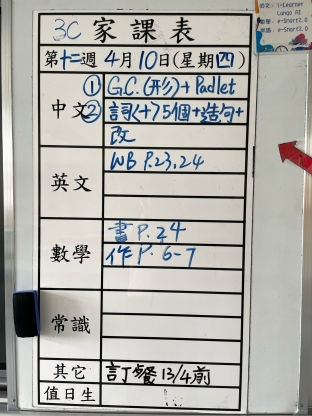 3C 家課表
第十二週 4月10日(星期四)
中文
① G.C.(形)+Padlet
② 詞(+75個+造句+
改
英文
WB P.23,24
數學
書 P.24
作 P.6-7
常識
其它 訂餐 13/4前
值日生
i-Learner
Lango AI
e-Smart2.0
e-Smart2.0